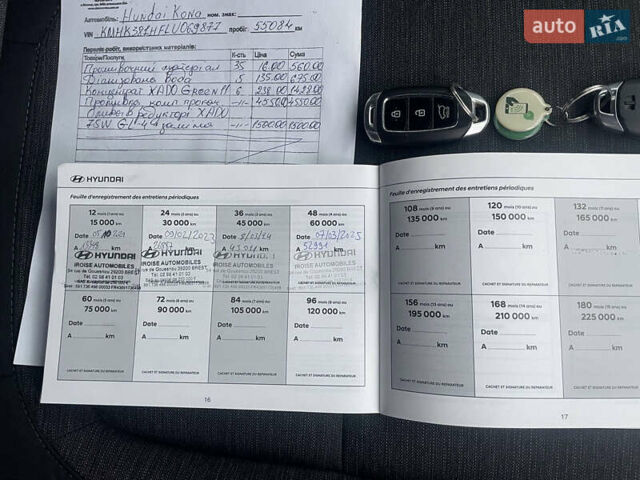 auto RIA.com
Автомобіль: Hundai Kona номер. знак:
VIN KMHK381HFLU069877 пробіг: 55084 км
Перелік робіт, використаних матеріалів:
Товари/Послуги К-сть Ціна Сума
Промивочний матеріал 35 16.00 560.00
Дистильована вода 5 135.00 675.00
Концентрат XADO Green 11 6 238.00 1428.00
-//- 4550.00 4550.00
XADO
75W GL-4 заміна -//- 1500.00 1500.00
HYUNDAI
Feuille d'enregistrement des entretiens périodiques
12 mois (1 ans) ou
15 000 km
Date
A km
24 mois (2 ans) ou
30 000 km
Date 09/02/2023
A km
36 mois (3 ans) ou
45 000 km
Date
A km
48 mois (4 ans) ou
60 000 km
Date 07/03/2025
A 52991 km
HYUNDAI
IROISE AUTOMOBILES
HYUNDAI
IROISE AUTOMOBILES
HYUNDAI
IROISE AUTOMOBILES
HYUNDAI
IROISE AUTOMOBILES
60 mois (5 ans) ou
75 000 km
Date
A km
CACHET ET SIGNATURE DU REPARATEUR
72 mois (6 ans) ou
90 000 km
Date
A km
CACHET ET SIGNATURE DU REPARATEUR
84 mois (7 ans) ou
105 000 km
Date
A km
CACHET ET SIGNATURE DU REPARATEUR
96 mois (8 ans) ou
120 000 km
Date
A km
CACHET ET SIGNATURE DU REPARATEUR
16
Feuille d'enregistrement des entretiens périodiques
108 mois (9 ans) ou
135 000 km
Date
A km
CACHET ET SIGNATURE DU REPARATEUR
120 mois (10 ans) ou
150 000 km
Date
A km
CACHET ET SIGNATURE DU REPARATEUR
132 mois (11
165 000 km
Date
A
CACHET ET SIGNATURE DU
156 mois (13 ans) ou
195 000 km
Date
A km
CACHET ET SIGNATURE DU REPARATEUR
168 mois (14 ans) ou
210 000 km
Date
A km
CACHET ET SIGNATURE DU REPARATEUR
180 mois (15
225 000 km
Date
A
CACHET ET SIGNATURE DU
17